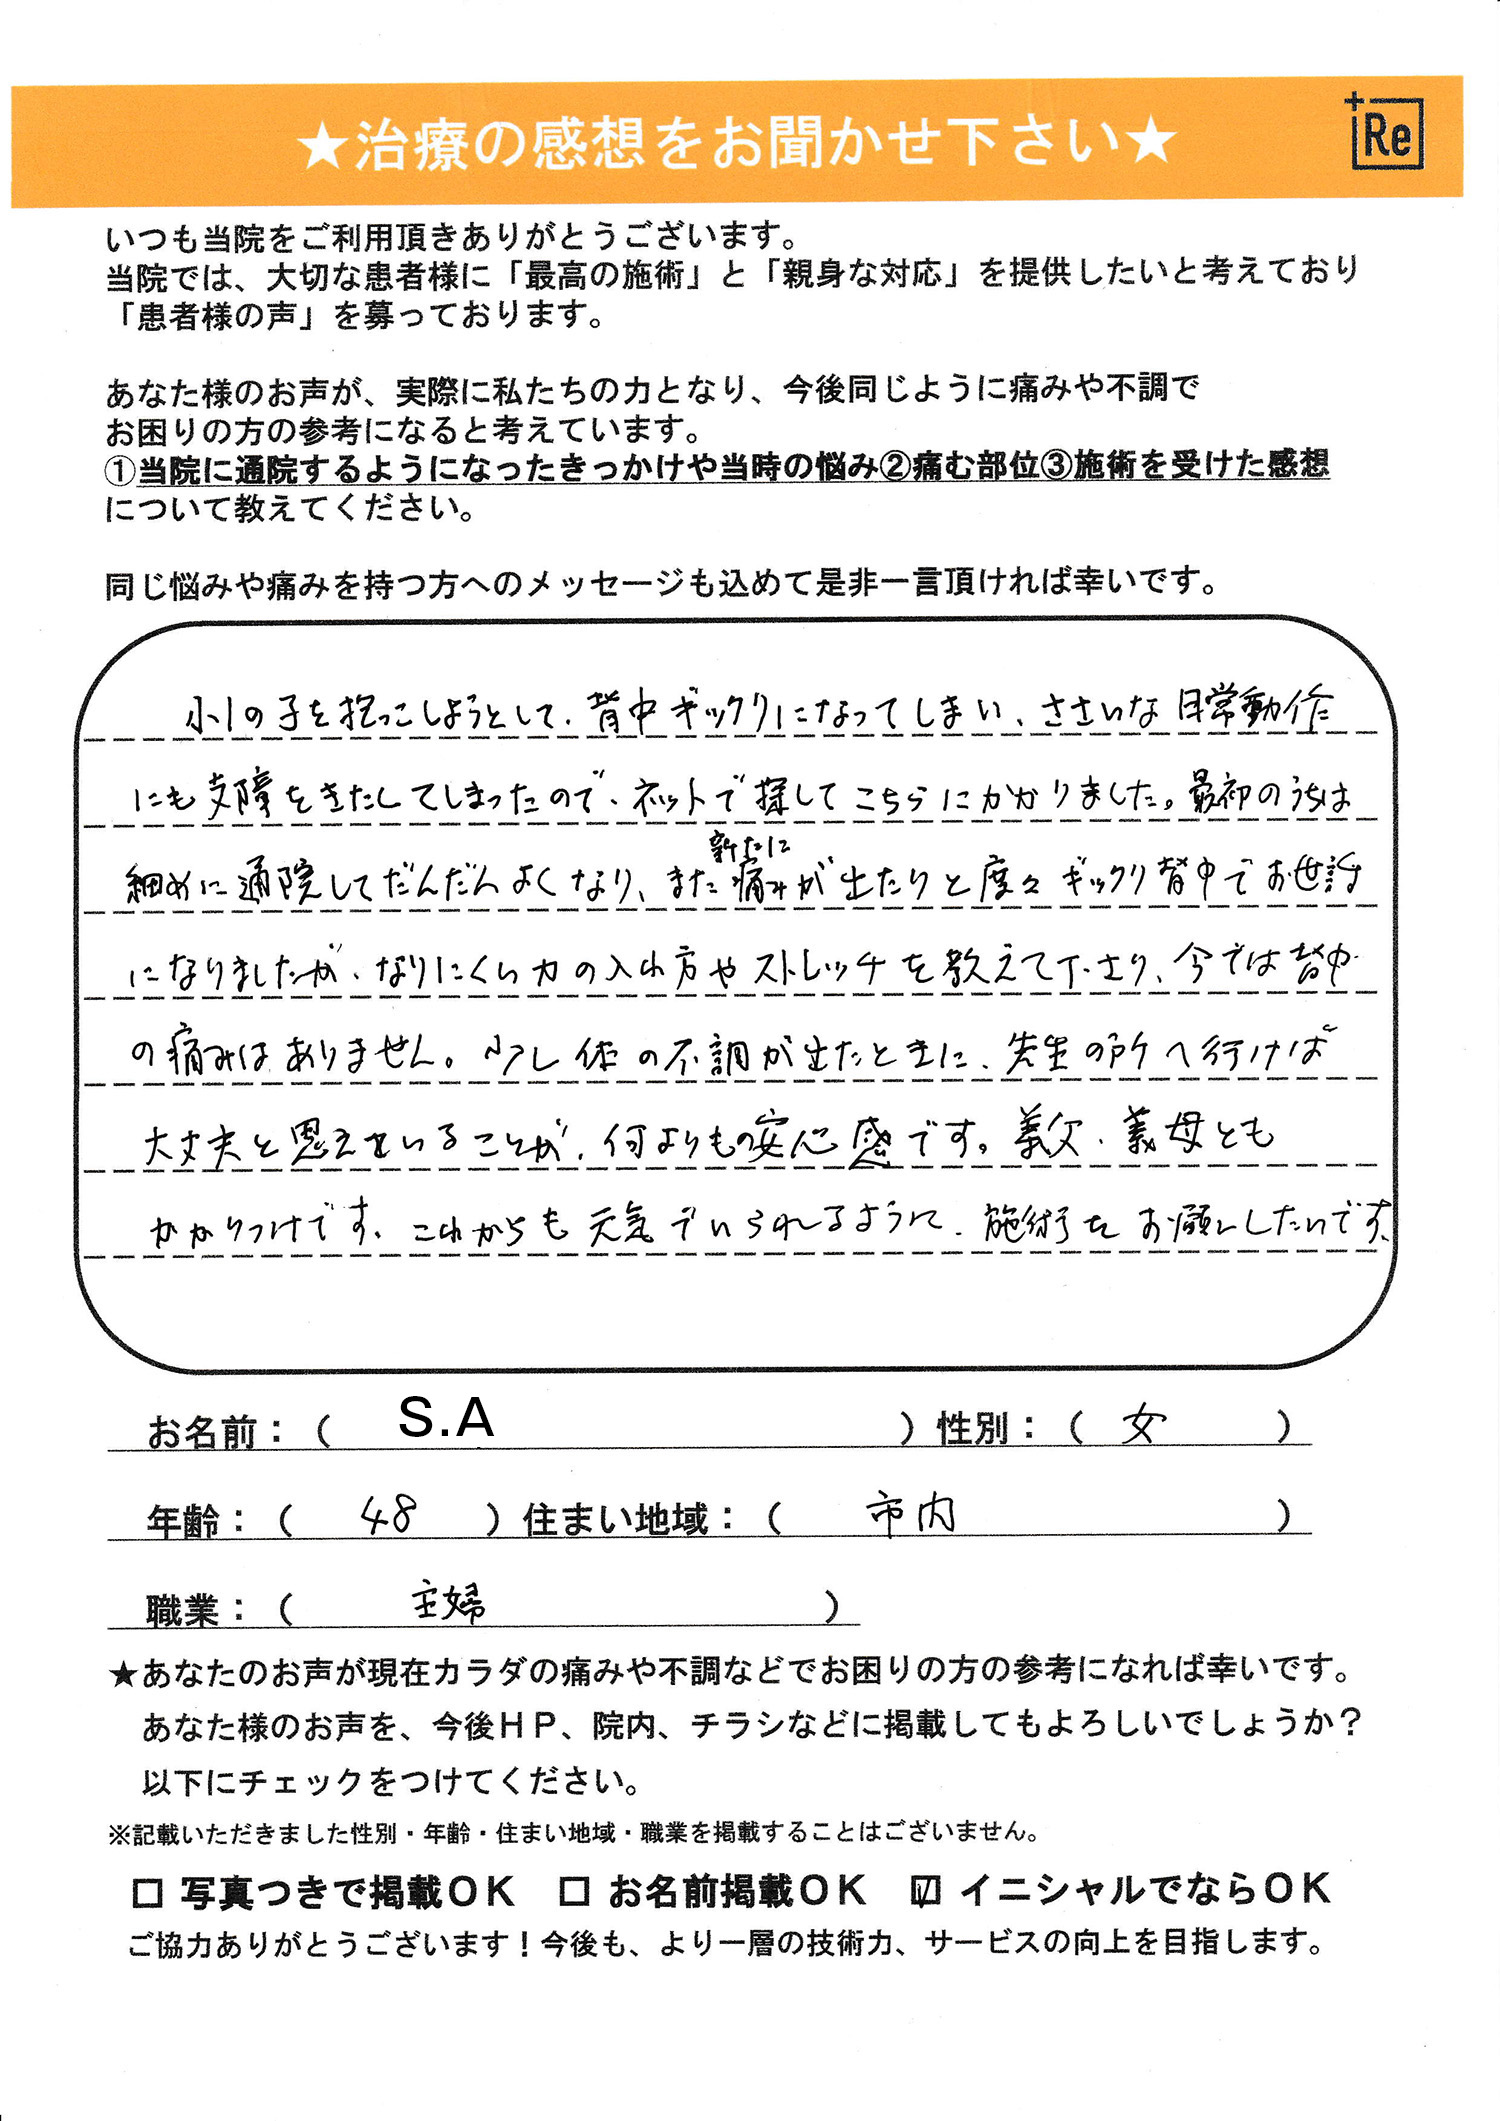 ★治療の感想をお聞かせ下さい★
+Re
いつも当院をご利用頂きありがとうございます。
当院では、大切な患者様に「最高の施術」と「親身な対応」を提供したいと考えており
「患者様の声」を募っております。
あなた様のお声が、実際に私たちの力となり、今後同じように痛みや不調で
お困りの方の参考になると考えています。
①当院に通院するようになったきっかけや当時の悩み②痛む部位③施術を受けた感想
について教えてください。
同じ悩みや痛みを持つ方へのメッセージも込めて是非一言頂ければ幸いです。
小1の子を抱っこしようとして、背中ギックリになってしまい、ささいな日常動作
にも支障をきたしてしまったので、ネットで探してこちらにかかりました。最初のうちは
新たに
細めに通院してだんだんよくなり、また痛みが出たりと度々ギックリ背中でお世話
になりましたが、なりにくい力の入れ方やストレッチを教えて下さり、今では背中
の痛みはありません。少し体の不調が出たときに、先生の所へ行けば
大丈夫と思えていることが、何よりもの安心感です。義父、義母とも
かかりつけです。これからも元気でいられるように、施術をお願いしたいです。
お名前：（ S.A ）性別：（ 女 ）
年齢：（ 48 ）住まい地域：（ 市内 ）
職業：（ 主婦 ）
★あなたのお声が現在カラダの痛みや不調などでお困りの方の参考になれば幸いです。
あなた様のお声を、今後ＨＰ、院内、チラシなどに掲載してもよろしいでしょうか？
以下にチェックをつけてください。
※記載いただきました性別・年齢・住まい地域・職業を掲載することはございません。
□ 写真つきで掲載ＯＫ □ お名前掲載ＯＫ ☑ イニシャルでならＯＫ
ご協力ありがとうございます！今後も、より一層の技術力、サービスの向上を目指します。